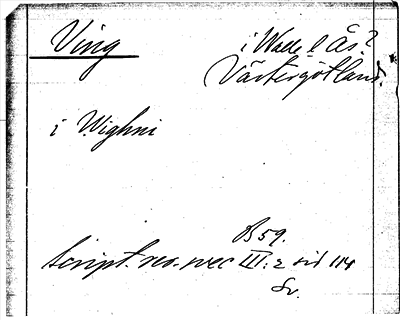 Ving
i Walle l Ås?
Västergötland.
i Wighni
B 59.
Script. rer. svec III: 2 sid 114
Sv.